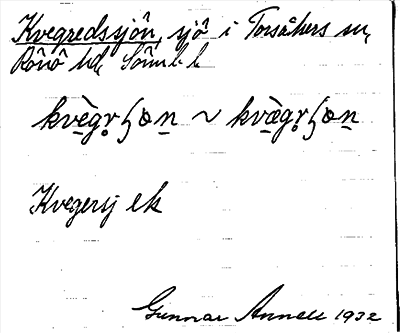 Kvegredssjön, sjö i Torsåkers sn,
Rönö hd, Söml. l.
kvègrʂɷn ~ kvæ̀grʂɷn
Kvegersj ek
Gunnar Annell 1932